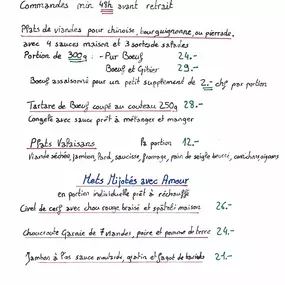 Commandes min 48h avant retrait
Plats de viandes pour chinoise, bourguignonne, ou pierrade,
avec 4 sauces maison et 3 sortes de salades
Portion de 300g : - Pur Boeuf 24.-
Boeuf et Gibier 29.-
Boeuf assaisonné pour un petit supplément de 2.- chf par portion
Tartare de Boeuf coupé au couteau 250g 28.-
Congelé avec sauce prêt à mélanger et manger
Plats Valaisans la portion 12.-
Viande séchée, jambon, lard, saucisse, fromage, pain de seigle beurré, cornichons oignons
Mets Mijotés avec Amour
en portion individuelle prêt à réchauffé
Civet de cerf avec chou rouge braisé et spätzli maison 26.-
Choucroute Garnie de 7 viandes, poire et pomme de terre 24.-
Jambon à l'os sauce moutarde, gratin et fagot de haricots 21.-